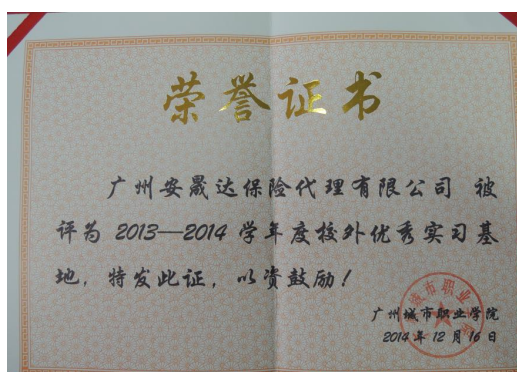 荣誉证书
广州安晟达保险代理有限公司 被
评为 2013—2014 学年度校外优秀实习基
地，特发此证，以资鼓励！
广州城市职业学院
2014 年 12 月 16 日